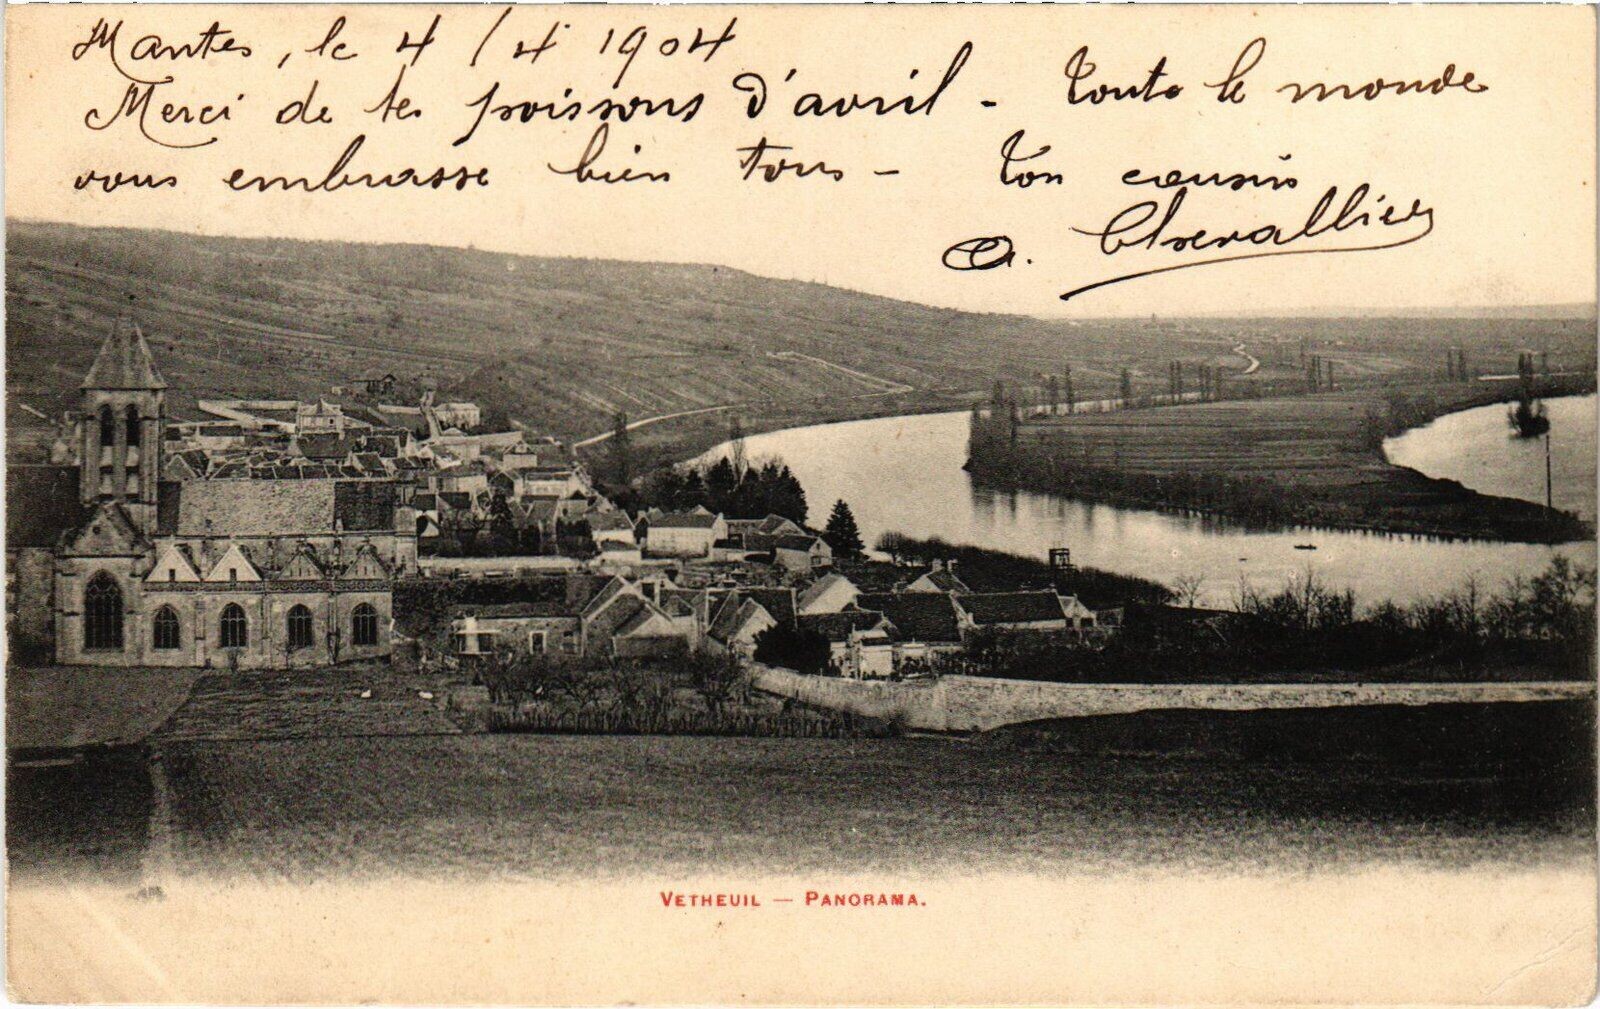 Mantes, le 4/4 1904
Merci de tes poissons d'avril - Toute le monde
vous embrasse bien tous - Ton cousin
A. Chevallier
VETHEUIL — PANORAMA.